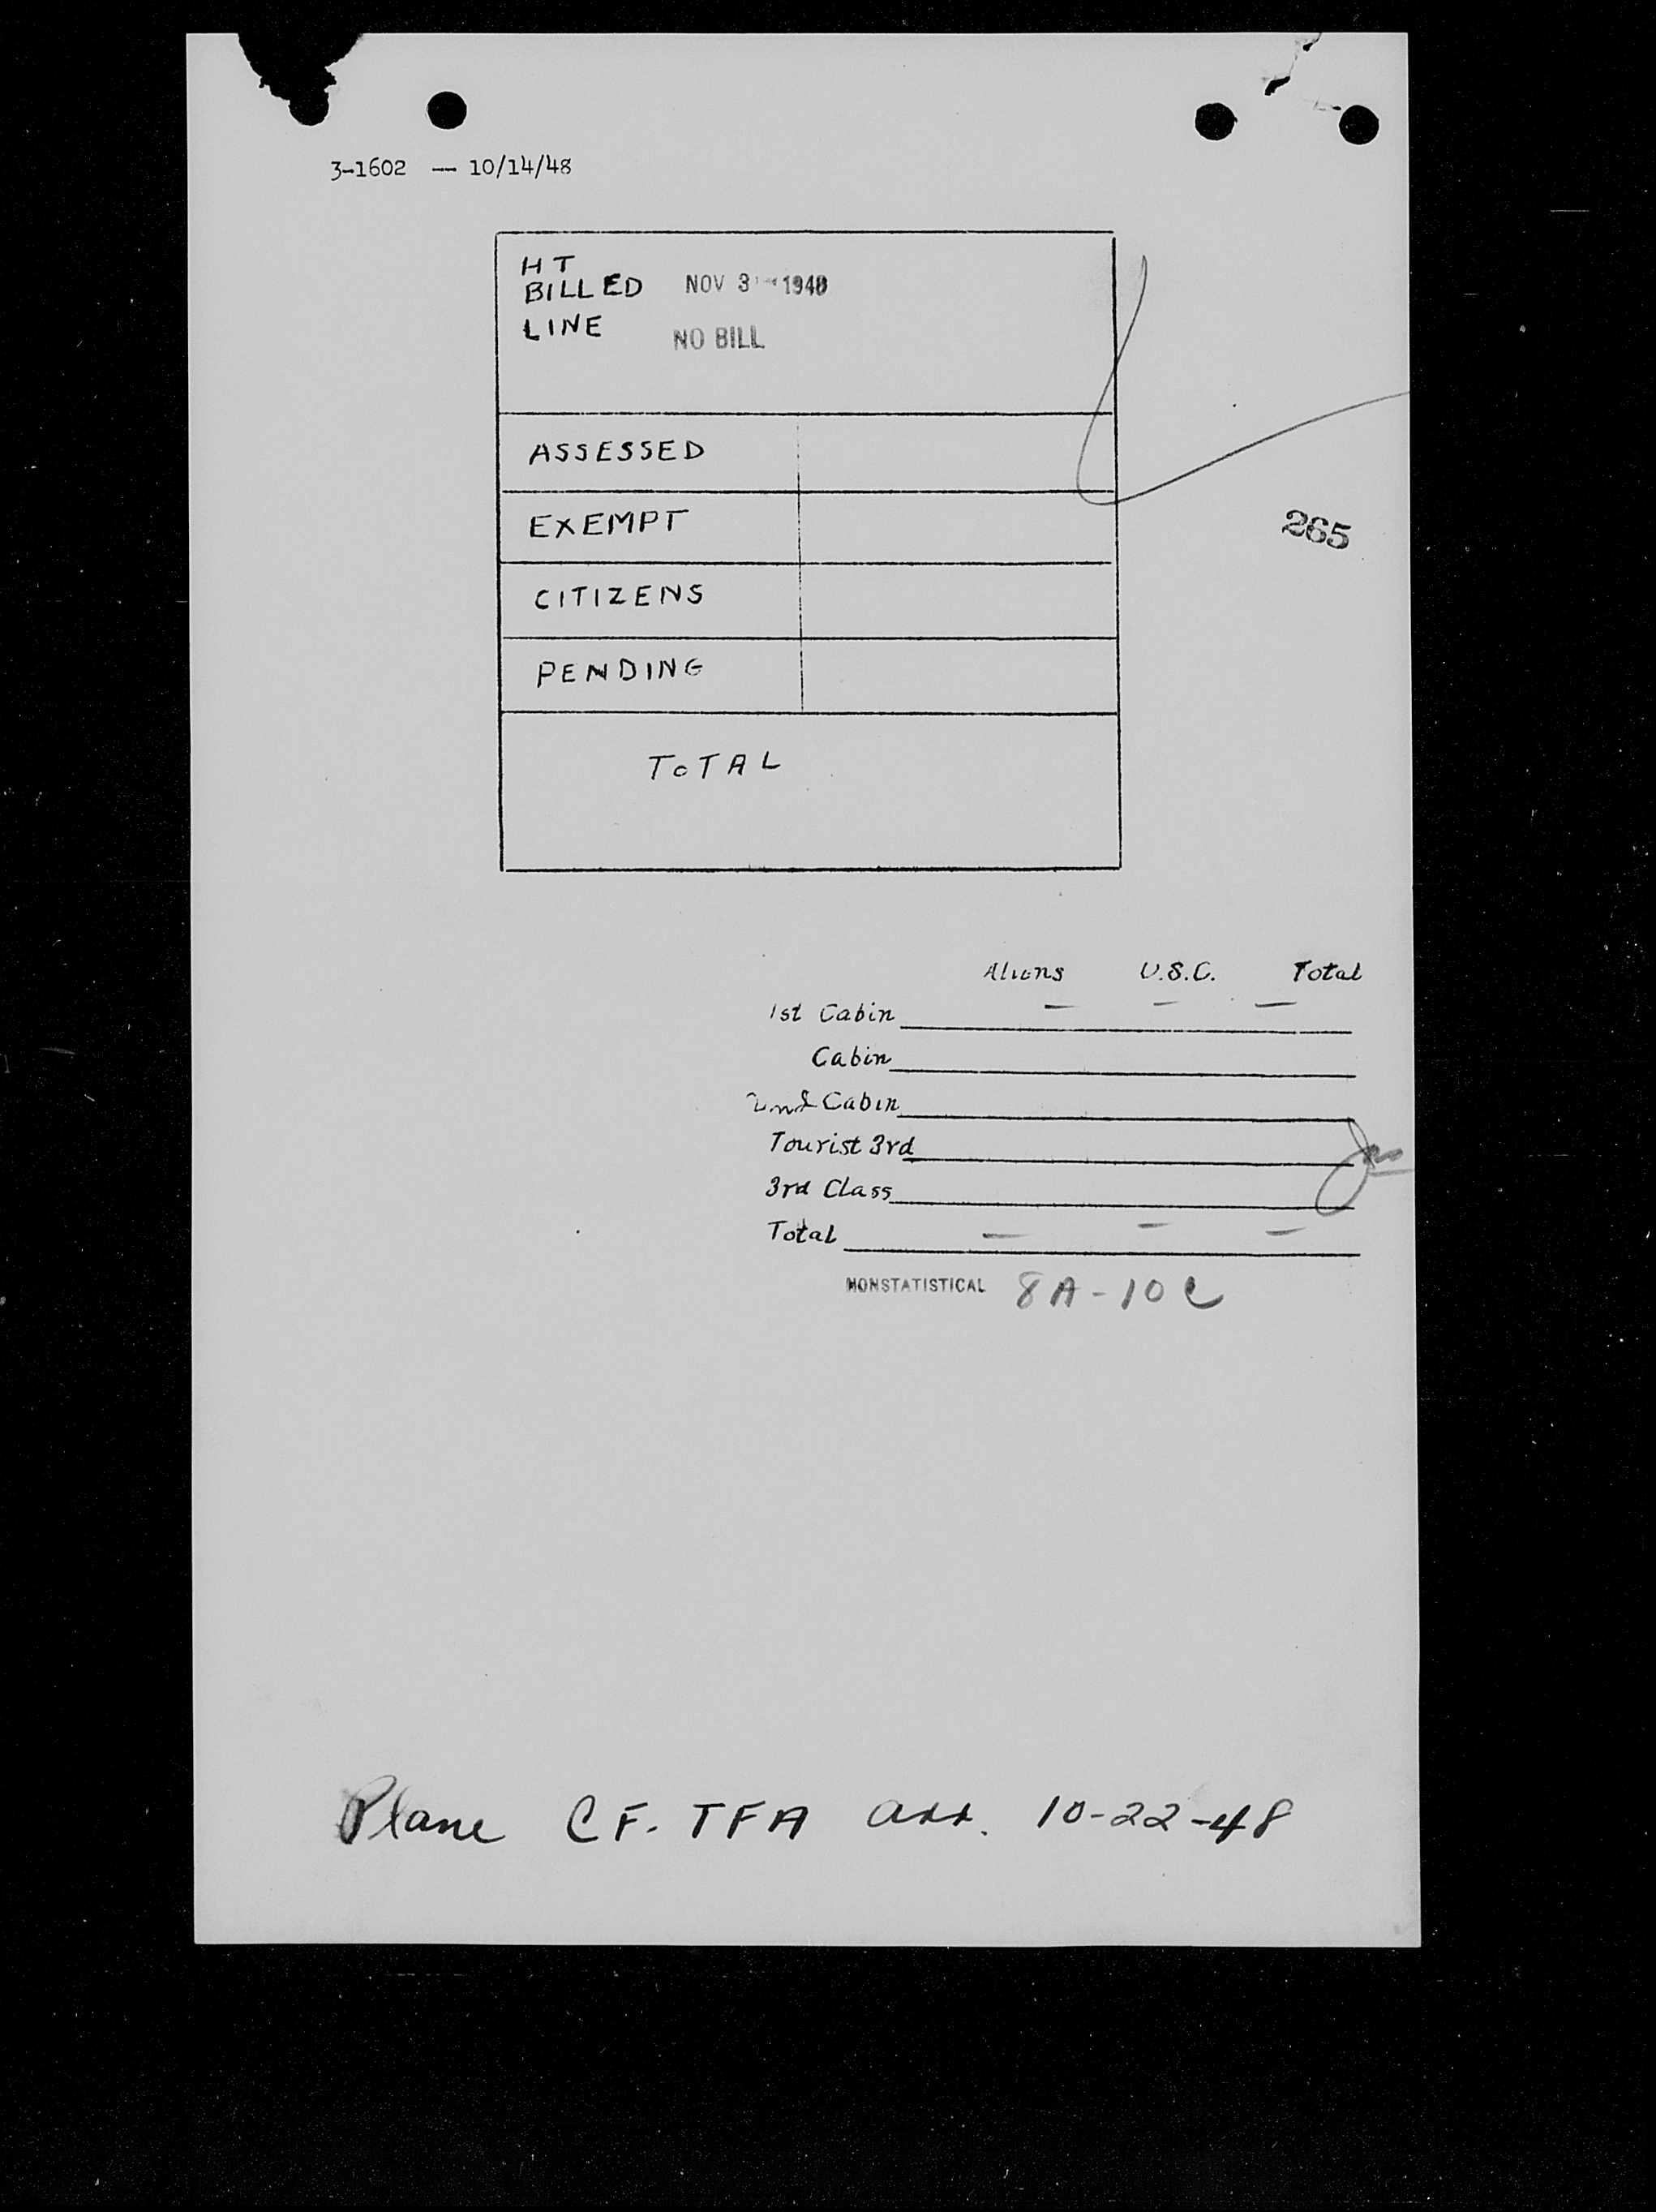 3-1602 — 10/14/48
HT
BILLED NOV 3 1948
LINE NO BILL
ASSESSED
EXEMPT
265
CITIZENS
PENDING
TOTAL
Aliens U.S.C. Total
1st Cabin — — —
Cabin
2nd Cabin
Tourist 3rd
3rd Class
Total — — —
NONSTATISTICAL 8A-10C
Plane CF. TFA arr. 10-22-48